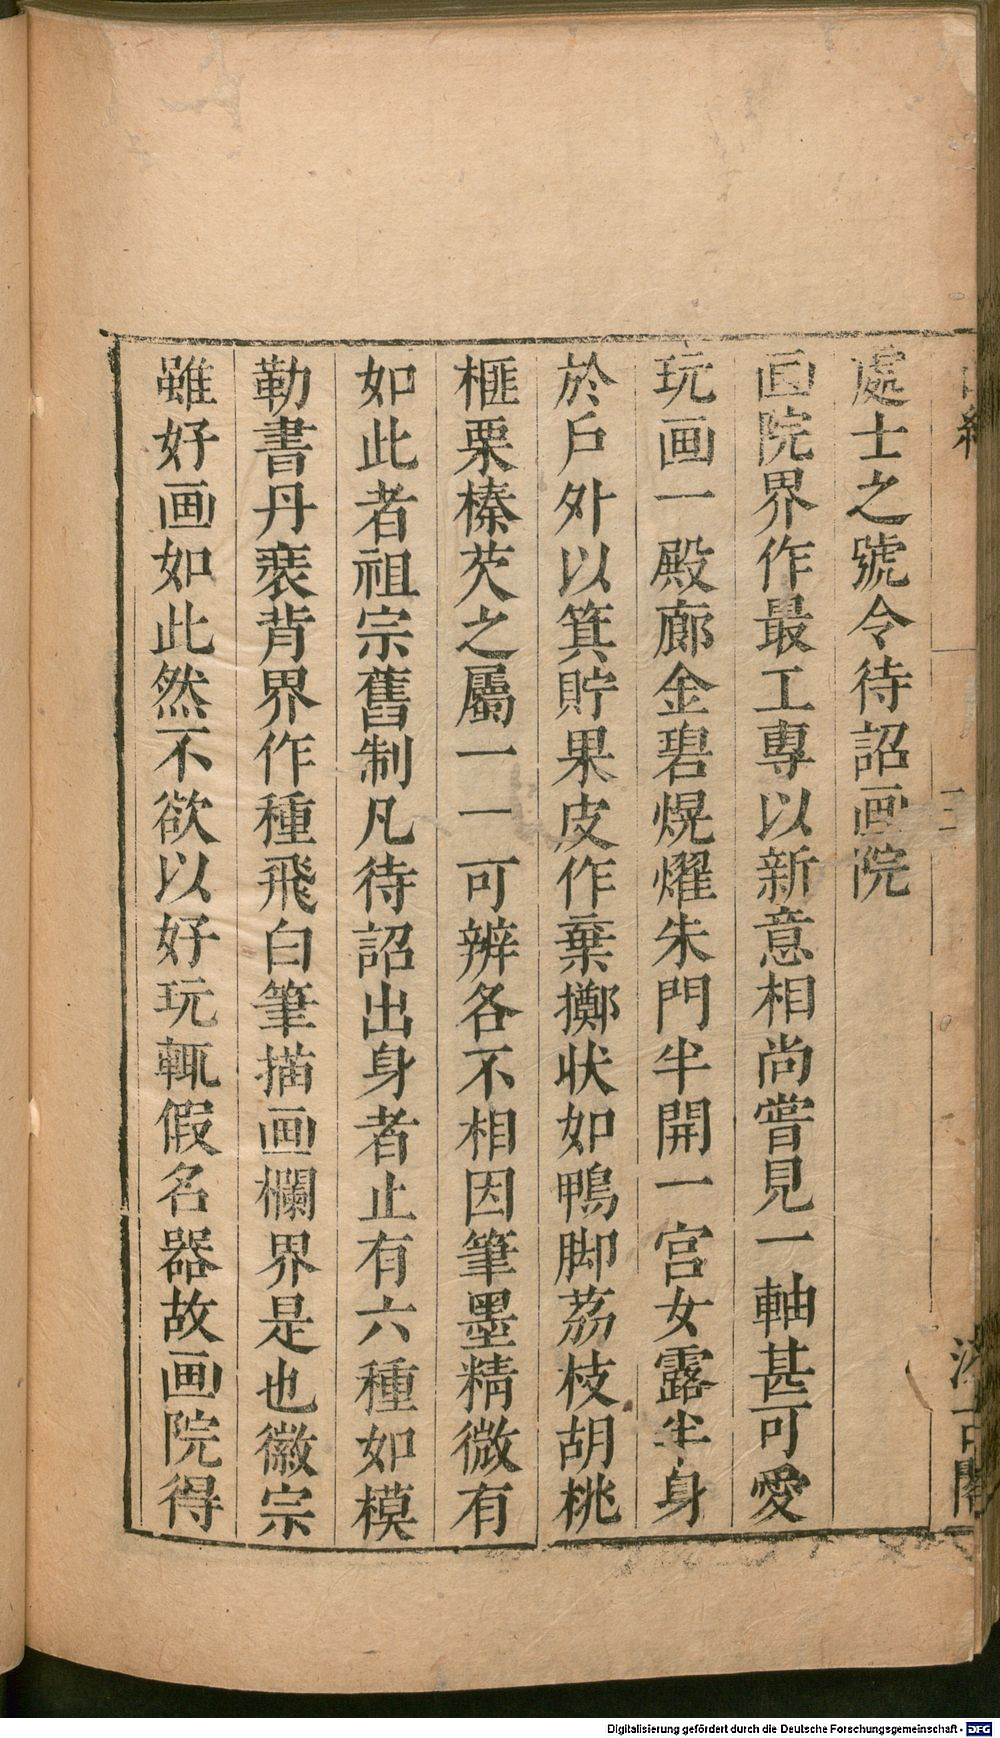 處士之號令待詔画院
画院界作最工專以新意相尚嘗見一軸甚可愛
玩画一殿廊金碧熀燿朱門半開一宮女露半身
於戶外以箕貯果皮作棄擲状如鴨脚荔枝胡桃
榧栗榛芡之屬一一可辨各不相因筆墨精微有
如此者祖宗舊制凡待詔出身者止有六種如模
勒書丹裱背界作種飛白筆描画欄界是也徽宗
雖好画如此然不欲以好玩輒假名器故画院得
三
汲古閣
Digitalisierung gefördert durch die Deutsche Forschungsgemeinschaft - DFG